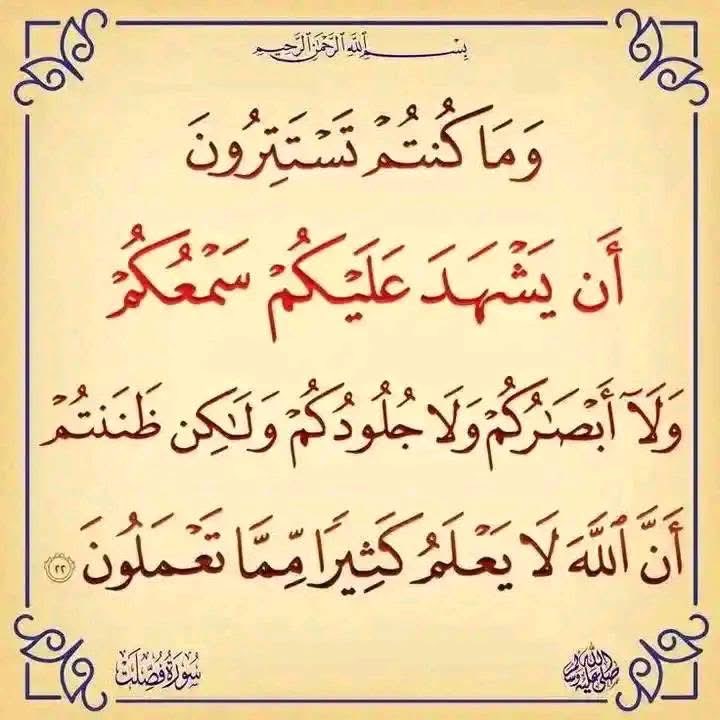 بِسْمِ اللَّهِ الرَّحْمَٰنِ الرَّحِيمِ
وَمَا كُنتُمْ تَسْتَتِرُونَ
أَن يَشْهَدَ عَلَيْكُمْ سَمْعُكُمْ
وَلَآ أَبْصَٰرُكُمْ وَلَا جُلُودُكُمْ وَلَٰكِن ظَنَنتُمْ
أَنَّ ٱللَّهَ لَا يَعْلَمُ كَثِيرًا مِّمَّا تَعْمَلُونَ ٢٢
صلى الله عليه وسلم
سُورَةُ فُصِّلَتْ